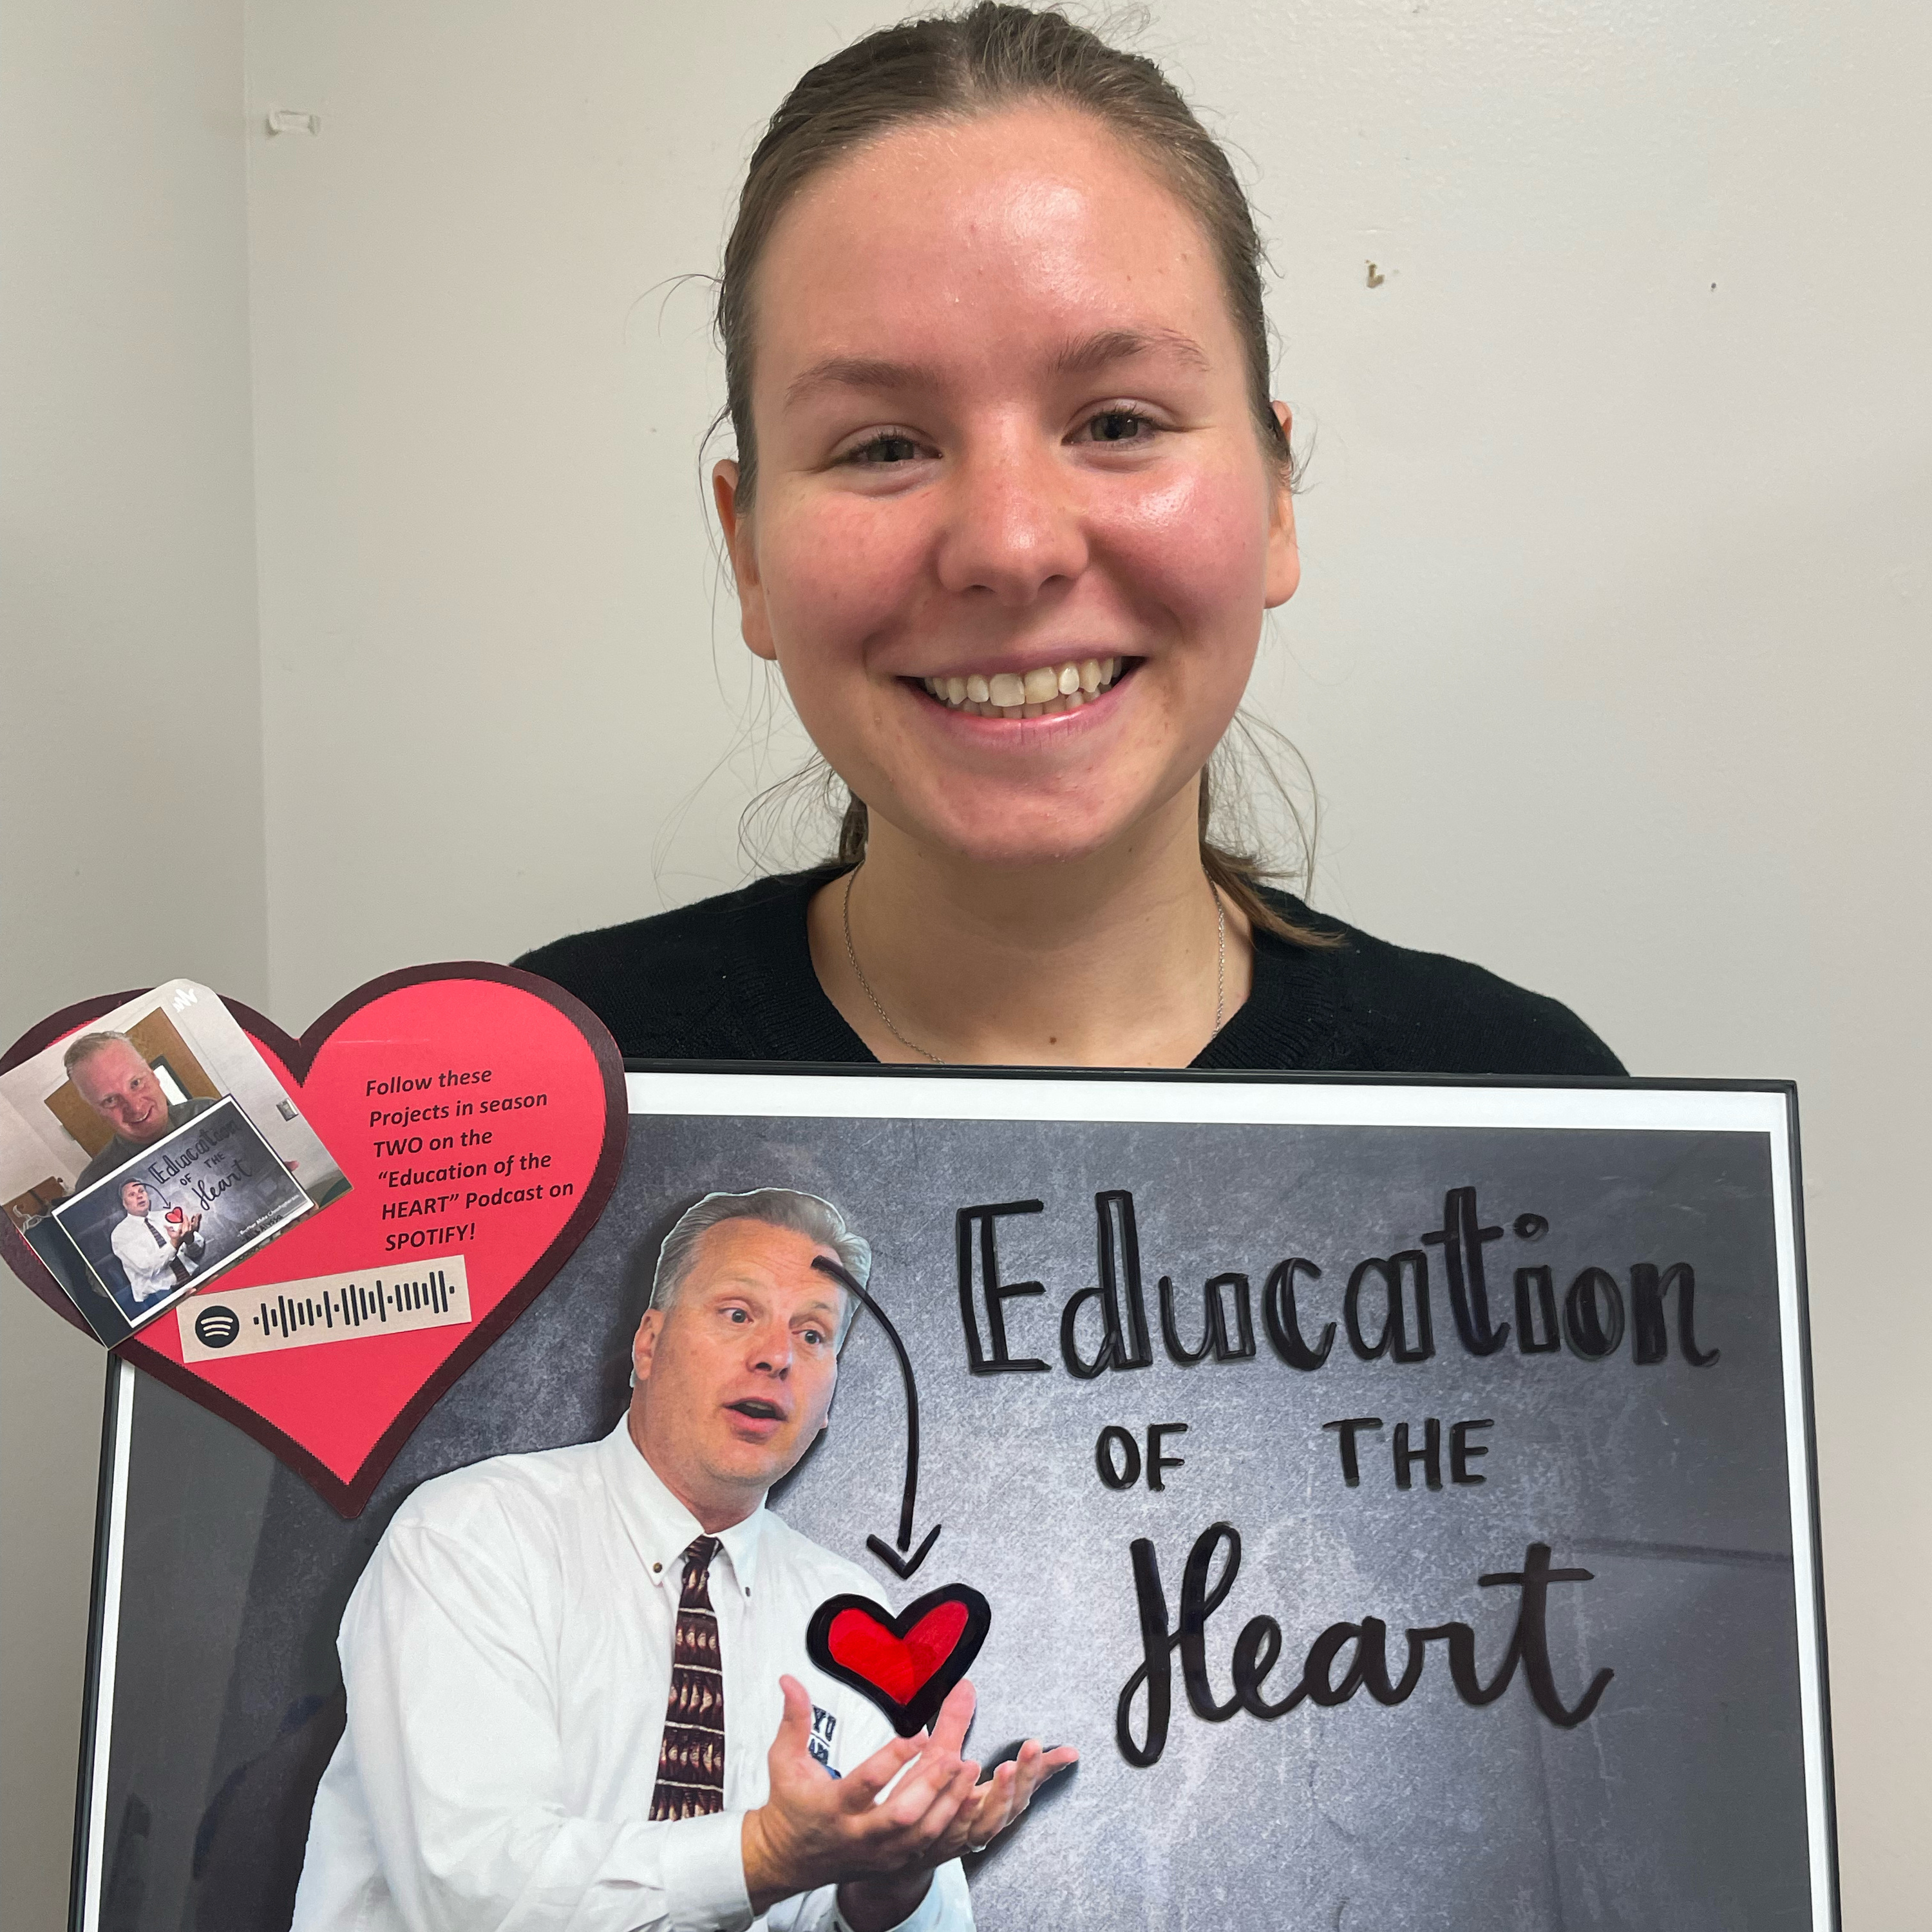 Follow these
Projects in season
TWO on the
“Education of the
HEART” Podcast on
SPOTIFY!
Education
OF THE
Heart
Education
OF THE
Heart
YU